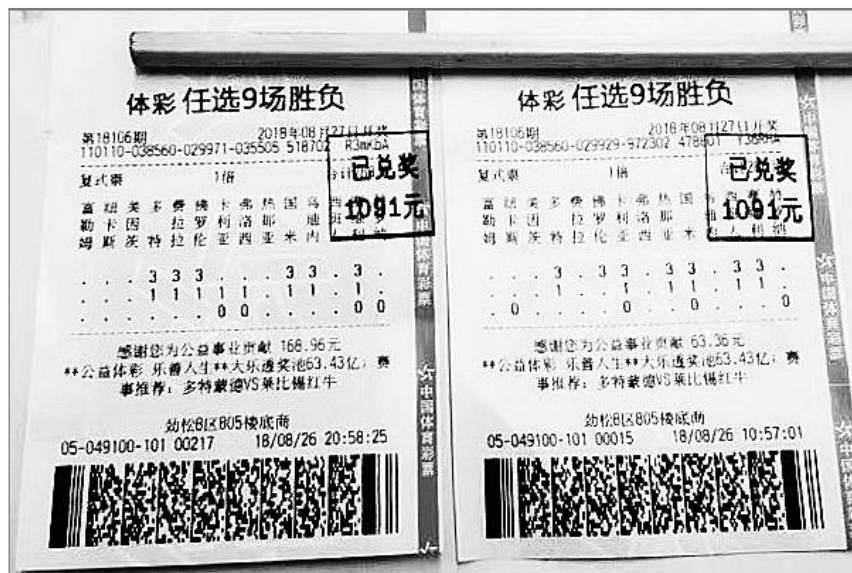 体彩 任选9场胜负
第18106期 2018年08月27日开奖
110110-038560-029971-035505 518702 R3mKbA
复式票 1倍
已兑奖
1091元
富 纽 美 多 费 佛 卡 弗 热 国 乌 西
勒 卡 因 拉 罗 利 洛 那 迪
姆 斯 茨 特 拉 伦 亚 西 亚 米 内
. . . 3 3 3 . . . 3 3 . 3 .
. . . 1 1 1 1 1 . 1 1 . 1 .
. . . . . . 0 0 . . . . 0 0
感谢您为公益事业贡献 168.96元
**公益体彩 乐善人生**大乐透奖池63.43亿; 赛
事推荐: 多特蒙德VS莱比锡红牛
劲松8区805楼底商
05-049100-101 00217 18/08/26 20:58:25
体彩 任选9场胜负
第18106期 2018年08月27日开奖
110110-038560-029929-972302
复式票 1倍
已兑奖
1091元
富 纽 美 多 费 佛 卡 弗 热 国
勒 卡 因 拉 罗 利 洛 那
姆 斯 茨 特 拉 伦 亚 西 亚 米 内
. . . 3 . 3 3 . 3 3 . 3 3 .
. 0 . . . . 0 . . 0 . . . 0
感谢您为公益事业贡献 63.36元
**公益体彩 乐善人生**大乐透奖池63.43亿; 赛
事推荐: 多特蒙德VS莱比锡红牛
劲松8区805楼底商
05-049100-101 00015 18/08/26 10:57:01
中国体育彩票
中国体育彩票